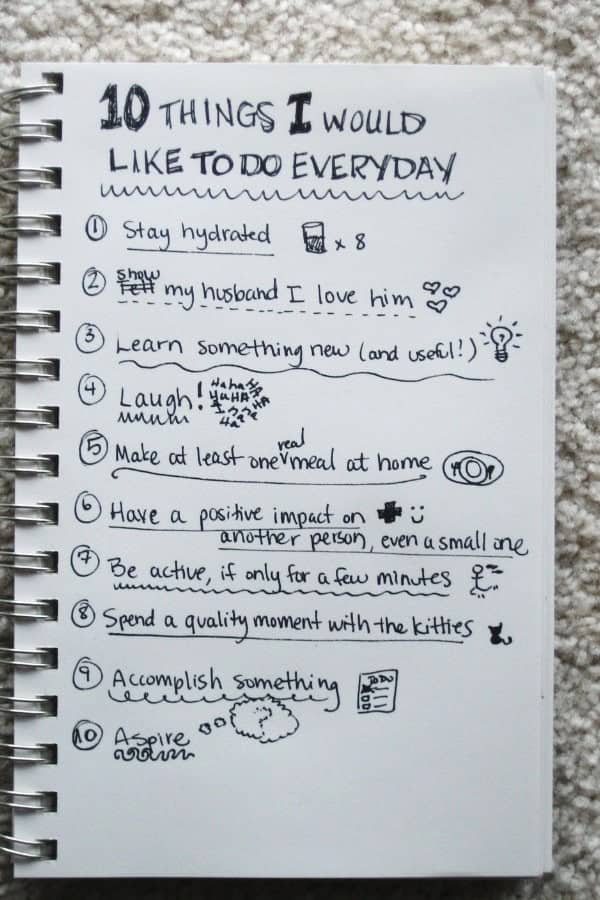 10 THINGS I WOULD
LIKE TO DO EVERYDAY
1 Stay hydrated x 8
2 show
Tell my husband I love him
3 Learn something new (and useful!) ?
4 Laugh! Haha HA
HaHA HA
5 Make at least one real meal at home
6 Have a positive impact on
another person, even a small one
7 Be active, if only for a few minutes
8 Spend a quality moment with the kitties
9 Accomplish something TO DO
10 Aspire ?